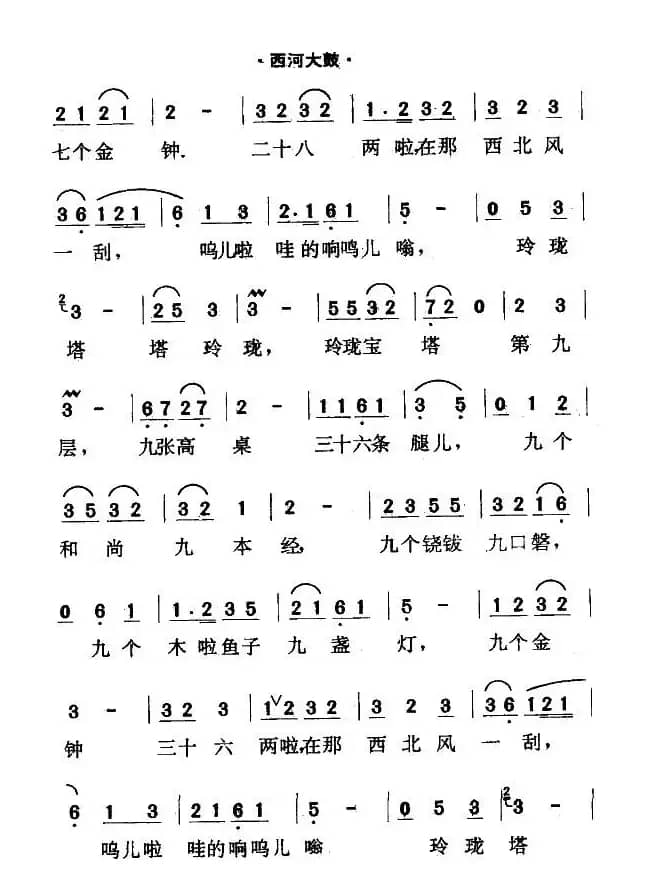 ·西河大鼓·
2 1 2 1 | 2 - | 3 2 3 2 | 1·2 3 2 | 3 2 3 |
七个金 钟. 二十八 两 啦,在那 西北风
3 6 1 2 1 | 6 1 3 | 2·1 6 1 | 5 - | 0 5 3 |
一刮, 呜儿啦 哇的响鸣儿嗡, 玲珑
3 - | 2 5 3 | 3 - | 5 5 3 2 | 7 2 0 | 2 3 |
塔 塔玲珑, 玲珑宝塔 第九
3 - | 6 7 2 7 | 2 - | 1 1 6 1 | 3 5 | 0 1 2 |
层, 九张高 桌 三十六条 腿儿, 九个
3 5 3 2 | 3 2 1 | 2 - | 2 3 5 5 | 3 2 1 6 |
和尚 九本经, 九个铙钹 九口磐,
0 6 1 | 1·2 3 5 | 2 1 6 1 | 5 - | 1 2 3 2 |
九个 木啦鱼子 九盏 灯, 九个金
3 - | 3 2 3 | 1 2 3 2 | 3 2 3 | 3 6 1 2 1 |
钟 三十六 两啦,在那 西北风 一刮,
6 1 3 | 2 1 6 1 | 5 - | 0 5 3 | 3 - |
呜儿啦 哇的响呜儿嗡 玲珑 塔